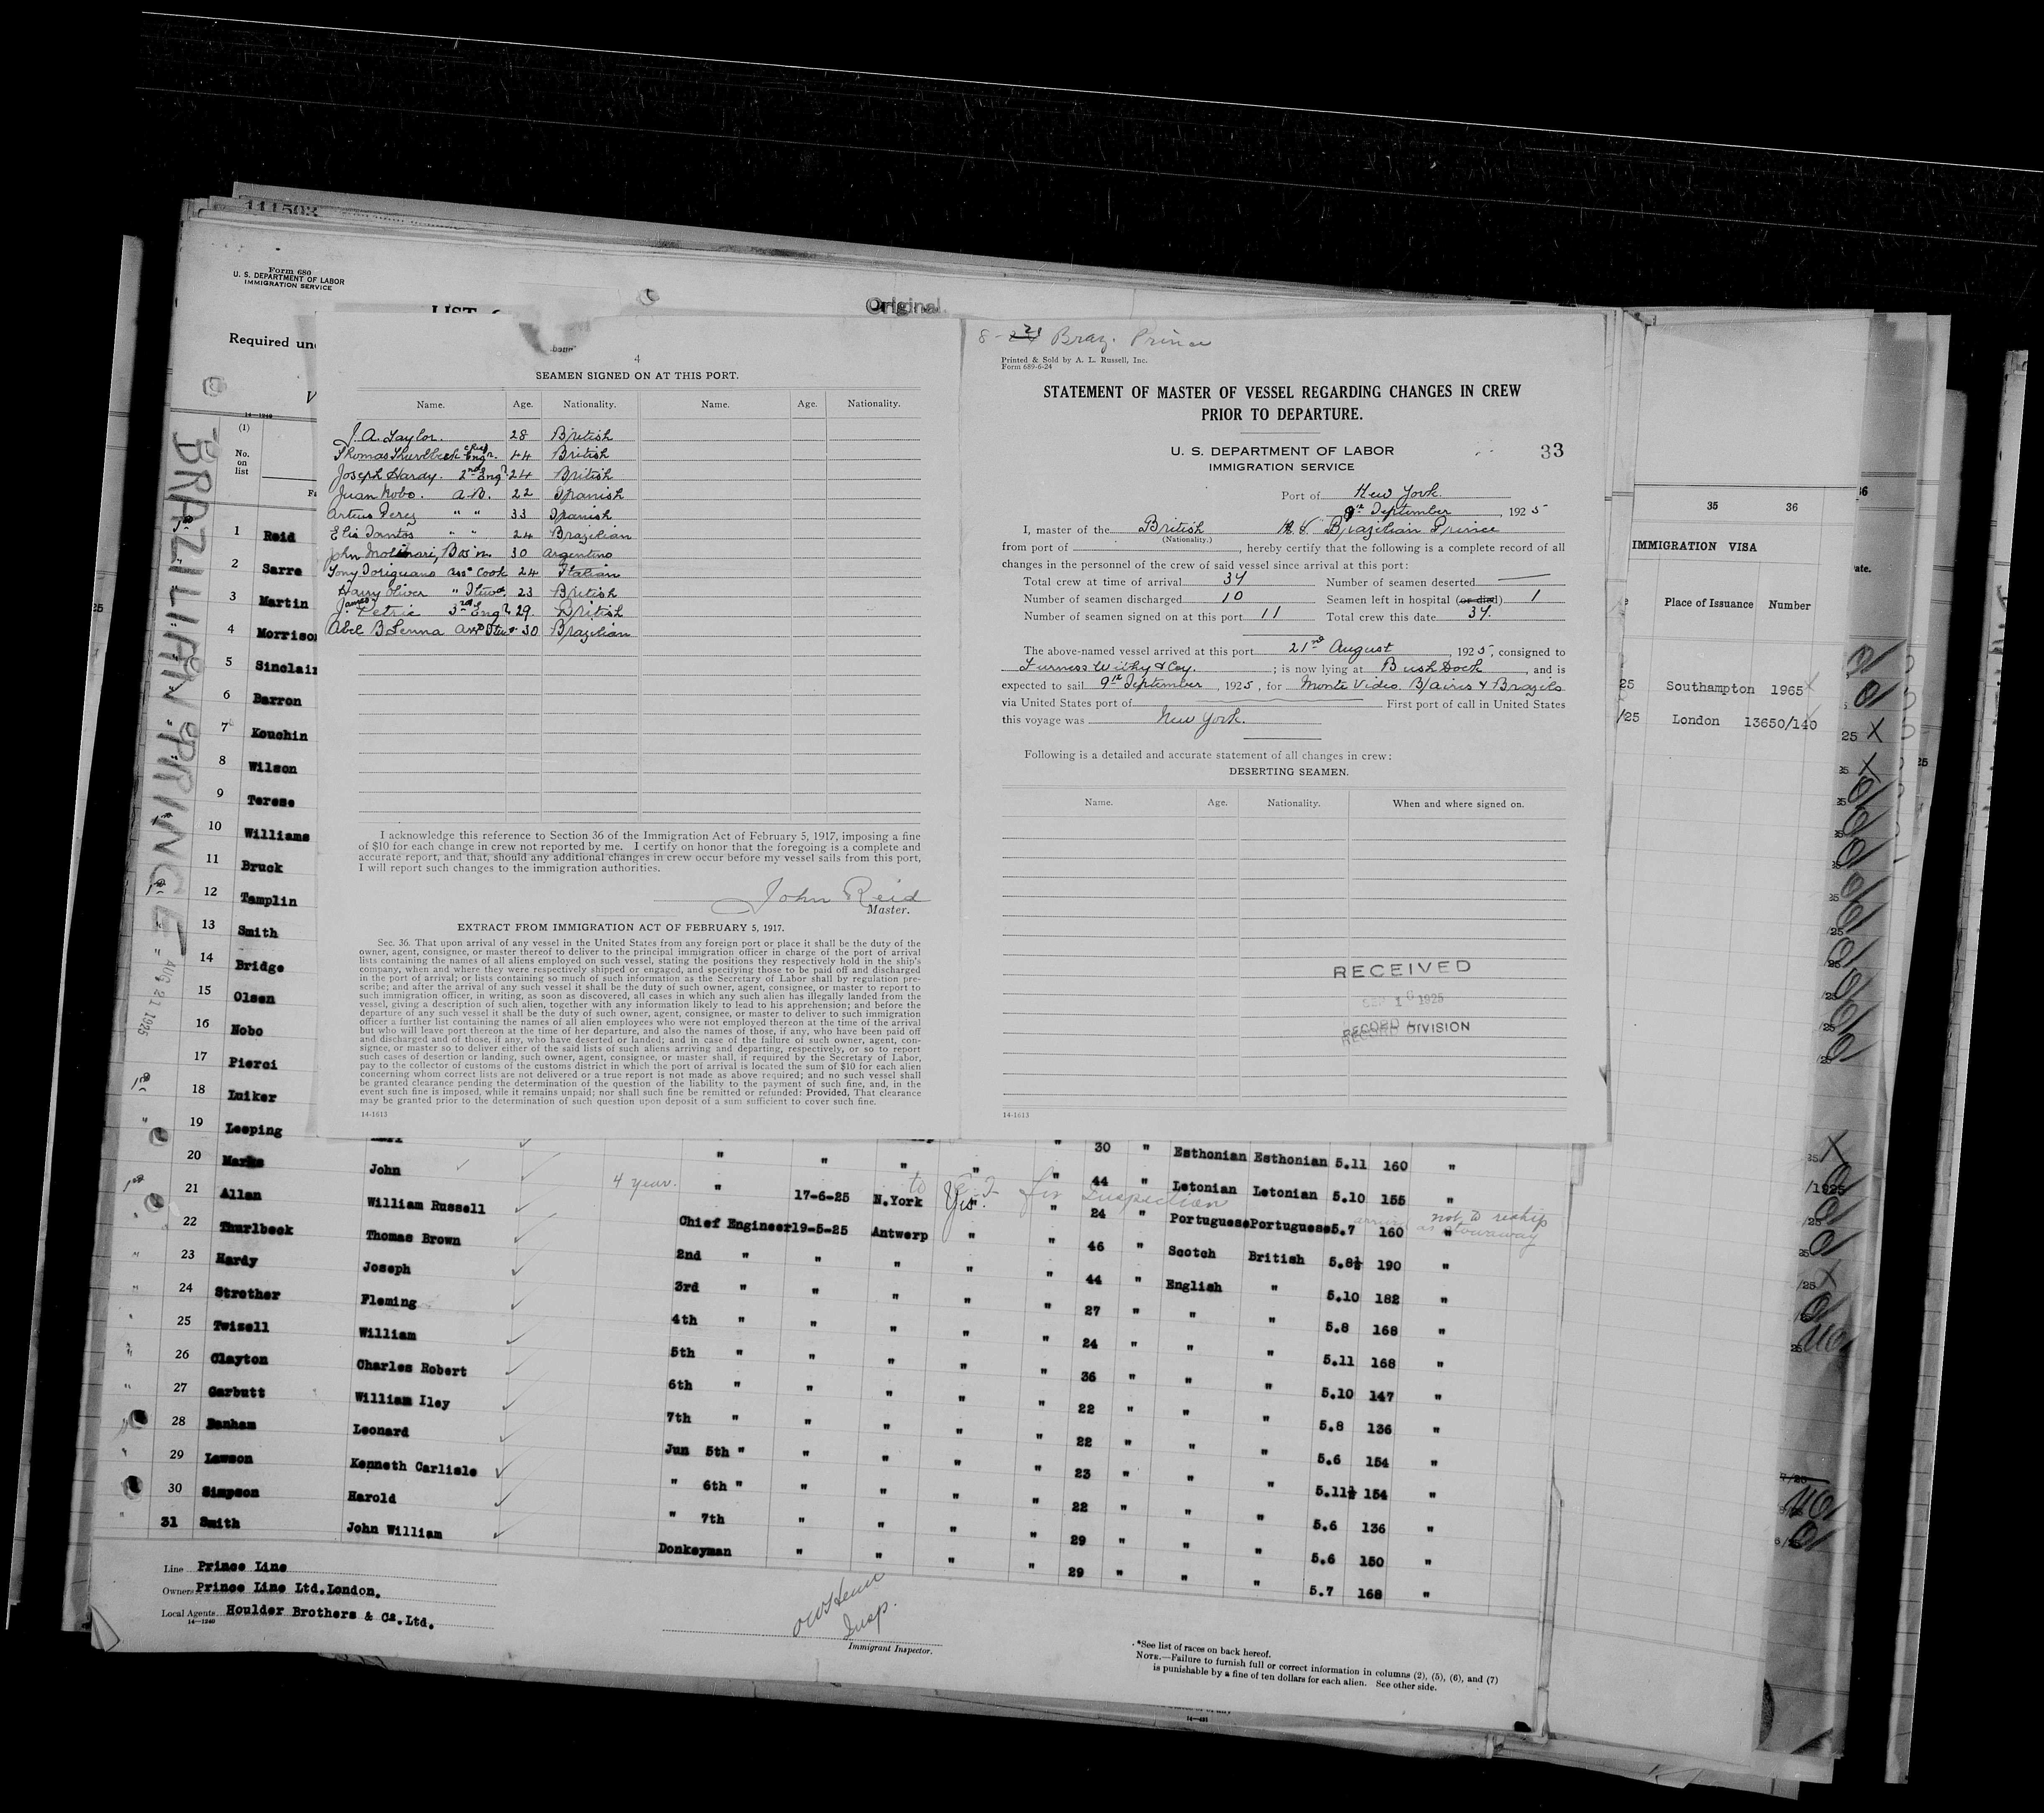 111593
Form 680
U. S. DEPARTMENT OF LABOR
IMMIGRATION SERVICE
Original
Required
14-1240
(1)
No.
on
list
BRAZILIAN PRINCE
AUG 21 1925
1 Reid
2 Sarre
3 Martin
4 Morrison
5 Sinclair
6 Barron
7 Kouchin
8 Wilson
9 Terese
10 Williams
11 Bruck
12 Tamplin
13 Smith
14 Bridge
15 Olsen
16 Nobo
17 Pierci
18 Luiker
19 Leeping
4
SEAMEN SIGNED ON AT THIS PORT.
Name. Age. Nationality. Name. Age. Nationality.
J. A. Taylor. 28 British
Thomas Thurlbeck Chief Engr. 44 British
Joseph Hardy. 2nd Engr 24 British
Juan Nobo. A.B. 22 Spanish
Arturo Perez " " 33 Spanish
Elis Santos " " 24 Brazilian
John Molinari, Bos'n. 30 Argentino
Tony Toriguano Asst Cook 24 Italian
Harry Oliver " Stewd. 23 British
James Petrie 3rd Engr 29. British
Abel B Senna Asst Stewd 30 Brazilian
I acknowledge this reference to Section 36 of the Immigration Act of February 5, 1917, imposing a fine
of $10 for each change in crew not reported by me. I certify on honor that the foregoing is a complete and
accurate report, and that, should any additional changes in crew occur before my vessel sails from this port,
I will report such changes to the immigration authorities.
John Reid
Master.
EXTRACT FROM IMMIGRATION ACT OF FEBRUARY 5, 1917.
Sec. 36. That upon arrival of any vessel in the United States from any foreign port or place it shall be the duty of the
owner, agent, consignee, or master thereof to deliver to the principal immigration officer in charge of the port of arrival
lists containing the names of all aliens employed on such vessel, stating the positions they respectively hold in the ship's
company, when and where they were respectively shipped or engaged, and specifying those to be paid off and discharged
in the port of arrival; or lists containing so much of such information as the Secretary of Labor shall by regulation pre-
scribe; and after the arrival of any such vessel it shall be the duty of such owner, agent, consignee, or master to report to
such immigration officer, in writing, as soon as discovered, all cases in which any such alien has illegally landed from the
vessel, giving a description of such alien, together with any information likely to lead to his apprehension; and before the
departure of any such vessel it shall be the duty of such owner, agent, consignee, or master to deliver to such immigration
officer a further list containing the names of all alien employees who were not employed thereon at the time of the arrival
but who will leave port thereon at the time of her departure, and also the names of those, if any, who have been paid off
and discharged and of those, if any, who have deserted or landed; and in case of the failure of such owner, agent, con-
signee, or master so to deliver either of the said lists of such aliens arriving and departing, respectively, or so to report
such cases of desertion or landing, such owner, agent, consignee, or master shall, if required by the Secretary of Labor,
pay to the collector of customs of the customs district in which the port of arrival is located the sum of $10 for each alien
concerning whom correct lists are not delivered or a true report is not made as above required; and no such vessel shall
be granted clearance pending the determination of the question of the liability to the payment of such fine, and, in the
event such fine is imposed, while it remains unpaid; nor shall such fine be remitted or refunded: Provided, That clearance
may be granted prior to the determination of such question upon deposit of a sum sufficient to cover such fine.
14-1613
8-21 Braz. Prince
Printed & Sold by A. L. Russell, Inc.
Form 689-6-24
STATEMENT OF MASTER OF VESSEL REGARDING CHANGES IN CREW
PRIOR TO DEPARTURE.
U. S. DEPARTMENT OF LABOR
IMMIGRATION SERVICE
33
Port of New York.
9th September, 1925
I, master of the British M.V. Brazilian Prince
(Nationality.)
from port of , hereby certify that the following is a complete record of all
changes in the personnel of the crew of said vessel since arrival at this port:
Total crew at time of arrival 34 Number of seamen deserted —
Number of seamen discharged 10 Seamen left in hospital (or died) 1
Number of seamen signed on at this port 11 Total crew this date 34.
The above-named vessel arrived at this port 21st August, 1925, consigned to
Furness Withy & Coy. ; is now lying at Bush Dock, and is
expected to sail 9th September, 1925, for Monte Video B/aires & Brazils
via United States port of First port of call in United States
this voyage was New York.
Following is a detailed and accurate statement of all changes in crew:
DESERTING SEAMEN.
Name. Age. Nationality. When and where signed on.
RECEIVED
SEP 10 1925
RECORD DIVISION
14-1613
35 36
IMMIGRATION VISA
Place of Issuance Number
25 Southampton 1965
/25 London 13650/140
30 " Esthonian Esthonian 5.11 160 "
20 Marks John " " " " " 44 " Letonian Letonian 5.10 155 "
4 year. to E.I. for Inspection
21 Allan William Russell " 17-6-25 N.York Yes. " 24 " Portuguese Portuguese 5.7 160 "
not to reship
as stowaway
22 Thurlbeck Thomas Brown Chief Engineer 19-5-25 Antwerp " " 46 " Scotch British 5.8½ 190 "
23 Hardy Joseph 2nd " " " " " 44 " English " 5.10 182 "
24 Strother Fleming 3rd " " " " " 27 " " " 5.8 168 "
25 Twizell William 4th " " " " " 24 " " " 5.11 168 "
26 Clayton Charles Robert 5th " " " " " 36 " " " 5.10 147 "
27 Garbutt William Iley 6th " " " " " 22 " " " 5.8 136 "
28 Danham Leonard 7th " " " " " 22 " " " 5.6 154 "
29 Lawson Kenneth Carlisle Jun 5th " " " " " 23 " " " 5.11½ 154 "
30 Simpson Harold " 6th " " " " " 22 " " " 5.6 136 "
31 Smith John William " 7th " " " " 29 " " " 5.6 150 "
Donkeyman " " " " 29 " " " 5.7 168 "
Line Prince Line
Owners Prince Line Ltd.London.
Local Agents Houlder Brothers & Co.Ltd.
14-1240
Insp.
Immigrant Inspector.
*See list of races on back hereof.
NOTE.—Failure to furnish full or correct information in columns (2), (5), (6), and (7)
is punishable by a fine of ten dollars for each alien. See other side.